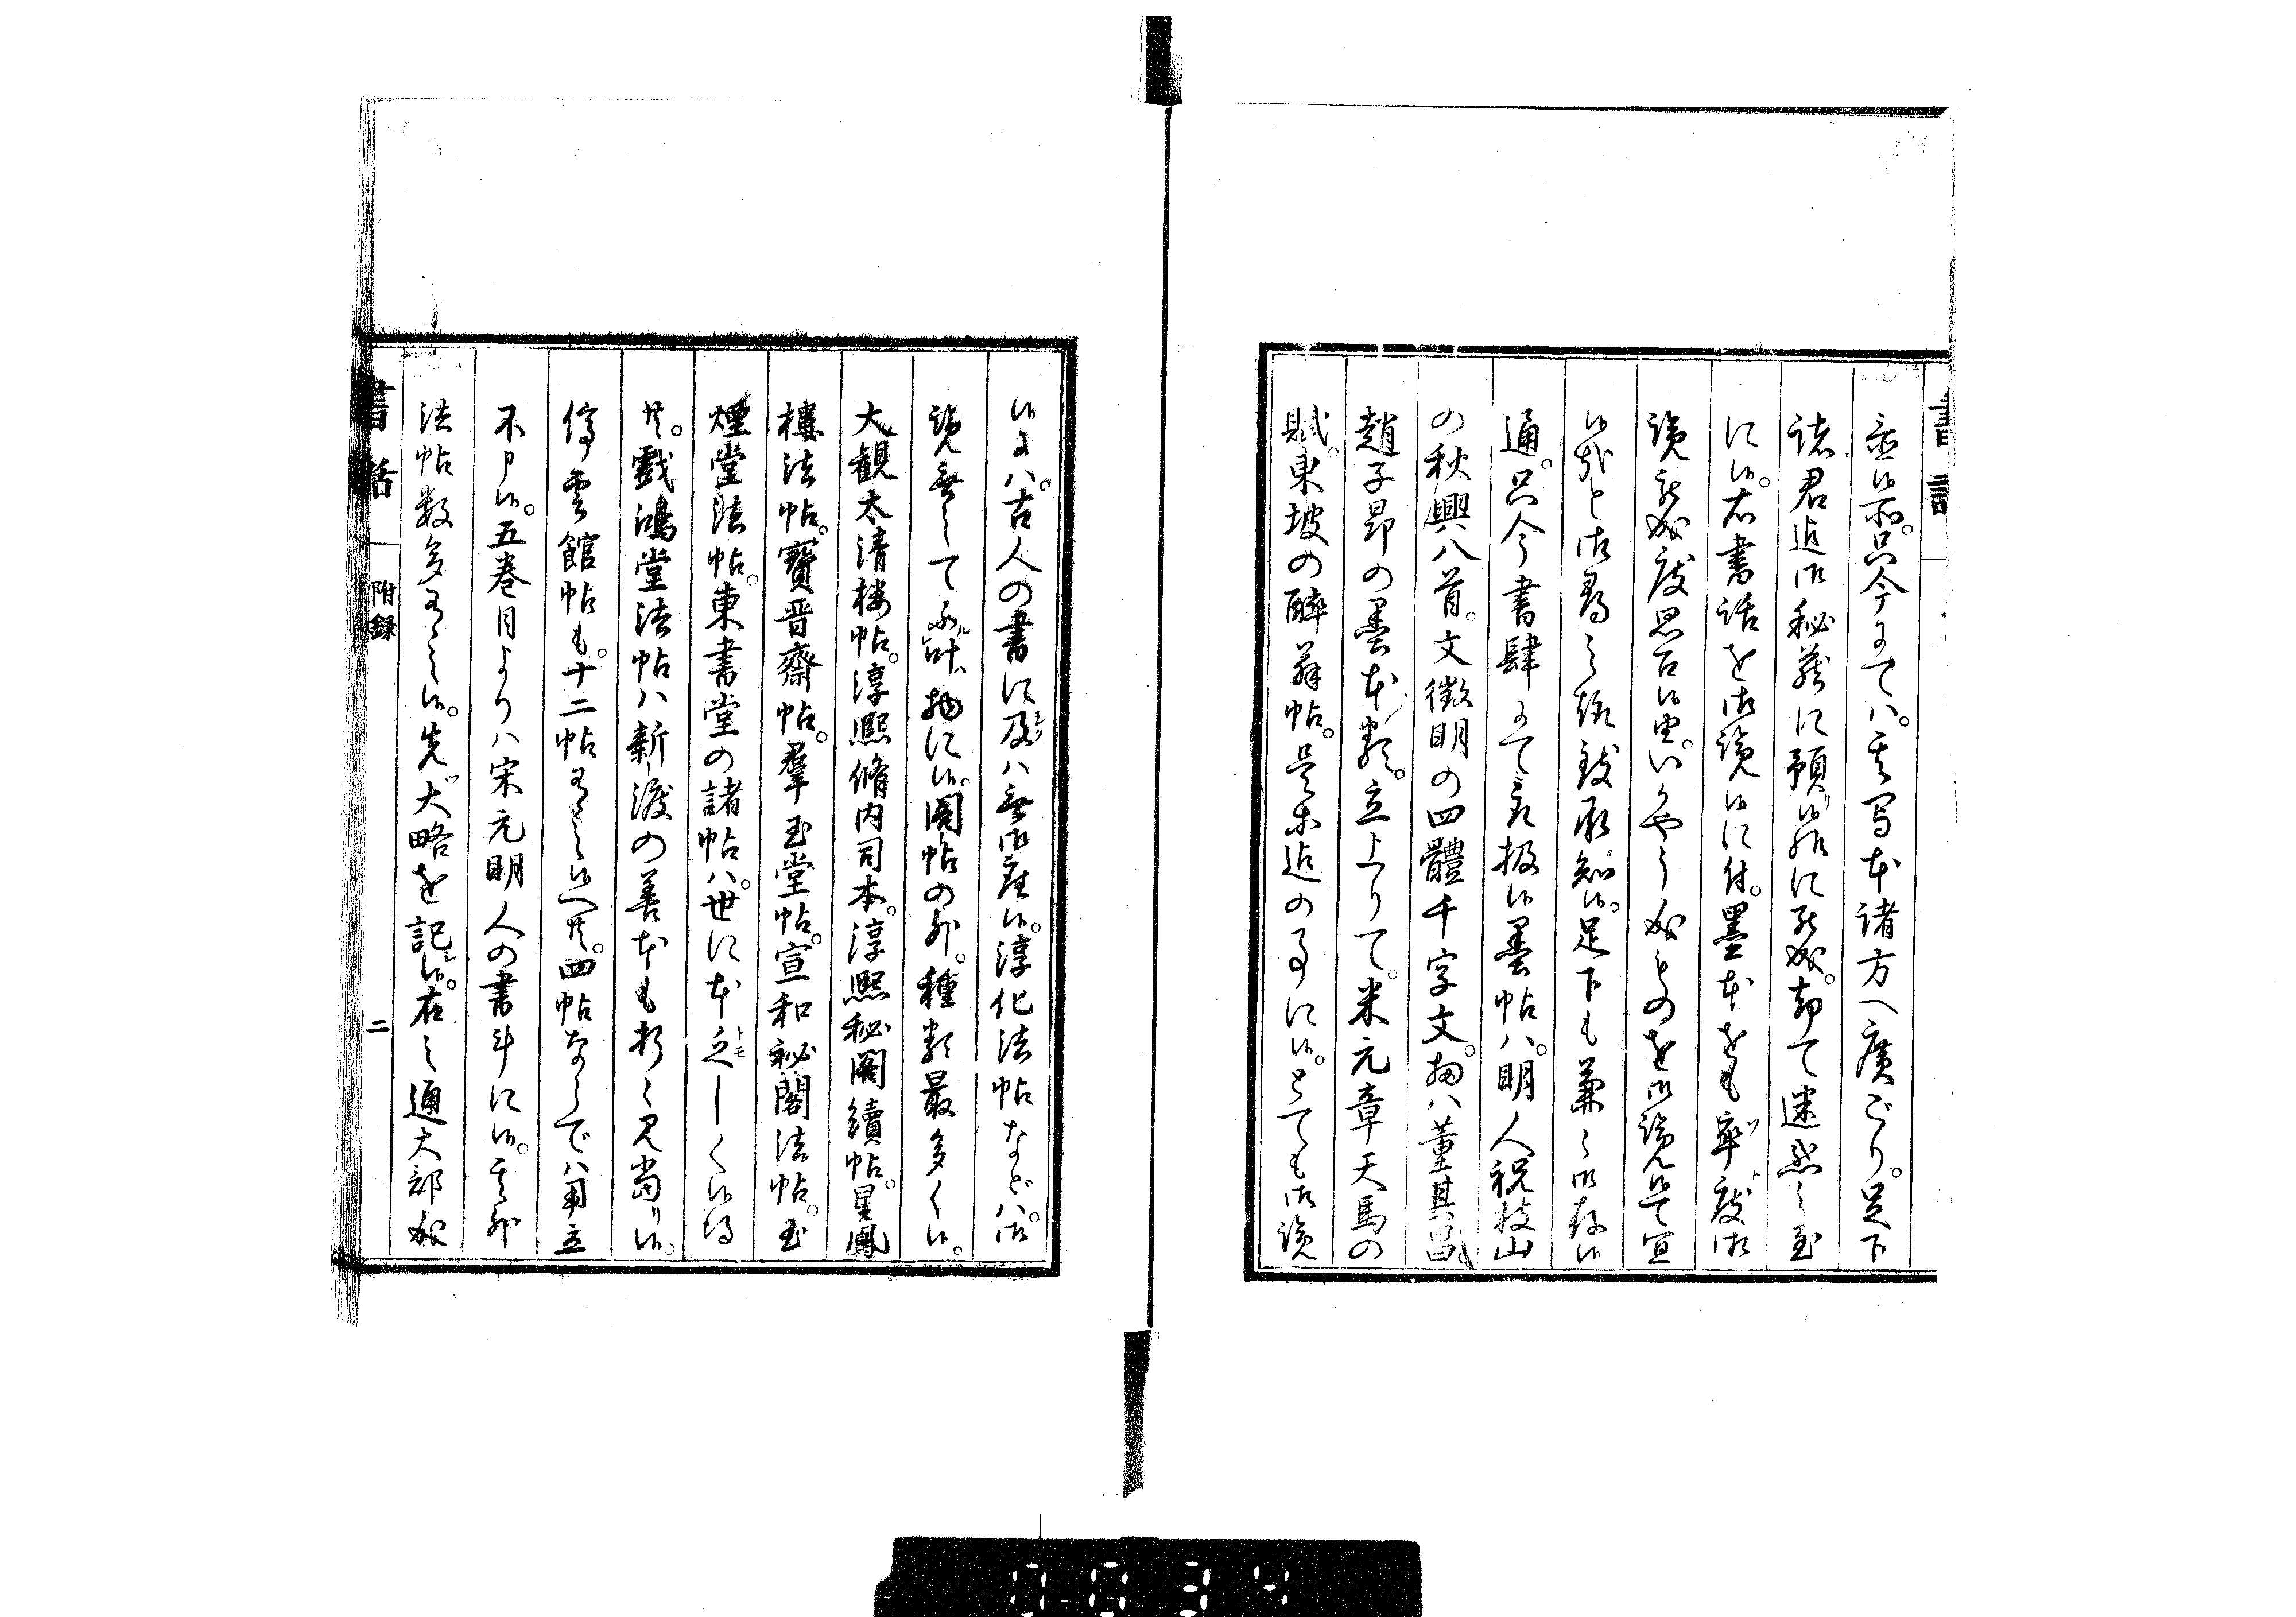 書話
諸候所。只今にてハ。其写本諸方へ廣ごり。足下
諸君迄御秘蔵に預り候様に罷成。却て迷惑之至
に候。右書話を御覧候に付。墨本をも率度御
覧被成度思召候由。いかやう成ものを御覧候て宜
候哉と御尋之趣致承知候。足下も兼々御存候
通。只今書肆にて売扱候墨帖ハ。明人祝枝山
の秋興八首。文徴明の四體千字文。扨ハ董其昌
趙子昂の墨本類。立上りて。米元章天馬の
賦。東坡の酔翁帖。是等迄の事に候。とても御覧
候にハ。古人の書に及ハ無御座候。淳化法帖などハ。御
覧無之て不叶物に候。閣帖の外。種類最多く候。
大観太清楼帖。淳熙脩内司本。淳熙秘閣續帖。星鳳
樓法帖。寶晋齋帖。羣玉堂帖。宣和秘閣法帖。玉
煙堂法帖。東書堂の諸帖ハ。世に本乏しく候得
共。戲鴻堂法帖ハ新渡の善本も折々見當り候。
停雲館帖も。十二帖有之候へ共。四帖ならでハ用立
不申候。五巻目よりハ宋元明人の書斗に候。其外
法帖数多有之候。先大略を記し候。右之通大部成
書話
附録
二
0034